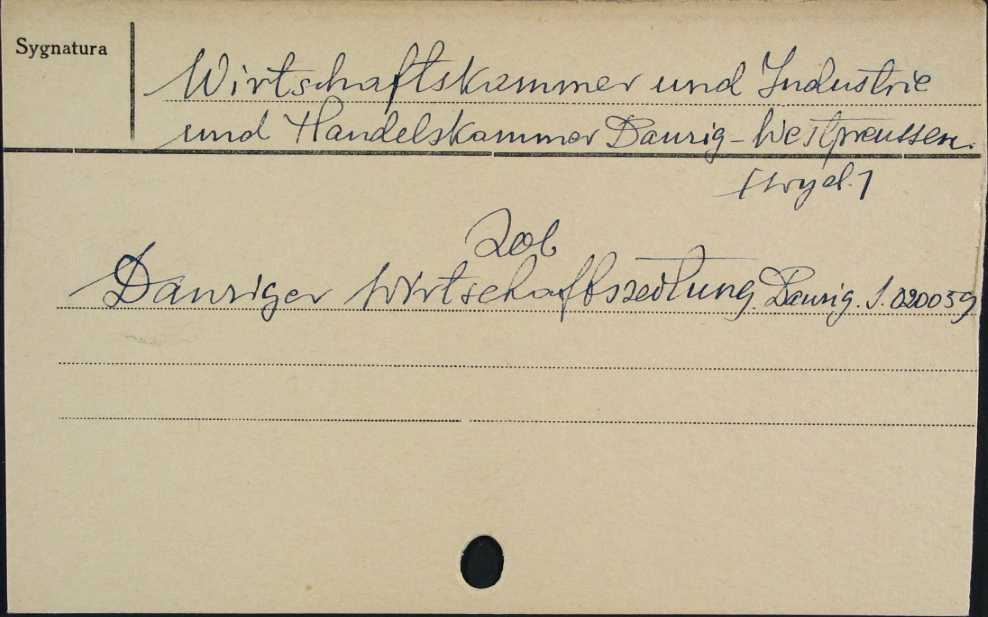 Sygnatura
Wirtschaftskammer und Industrie
und Handelskammer Danzig-Westpreussen.
[wyd.]
Zob
Danziger Wirtschaftszeitung. Danzig. S. 020059